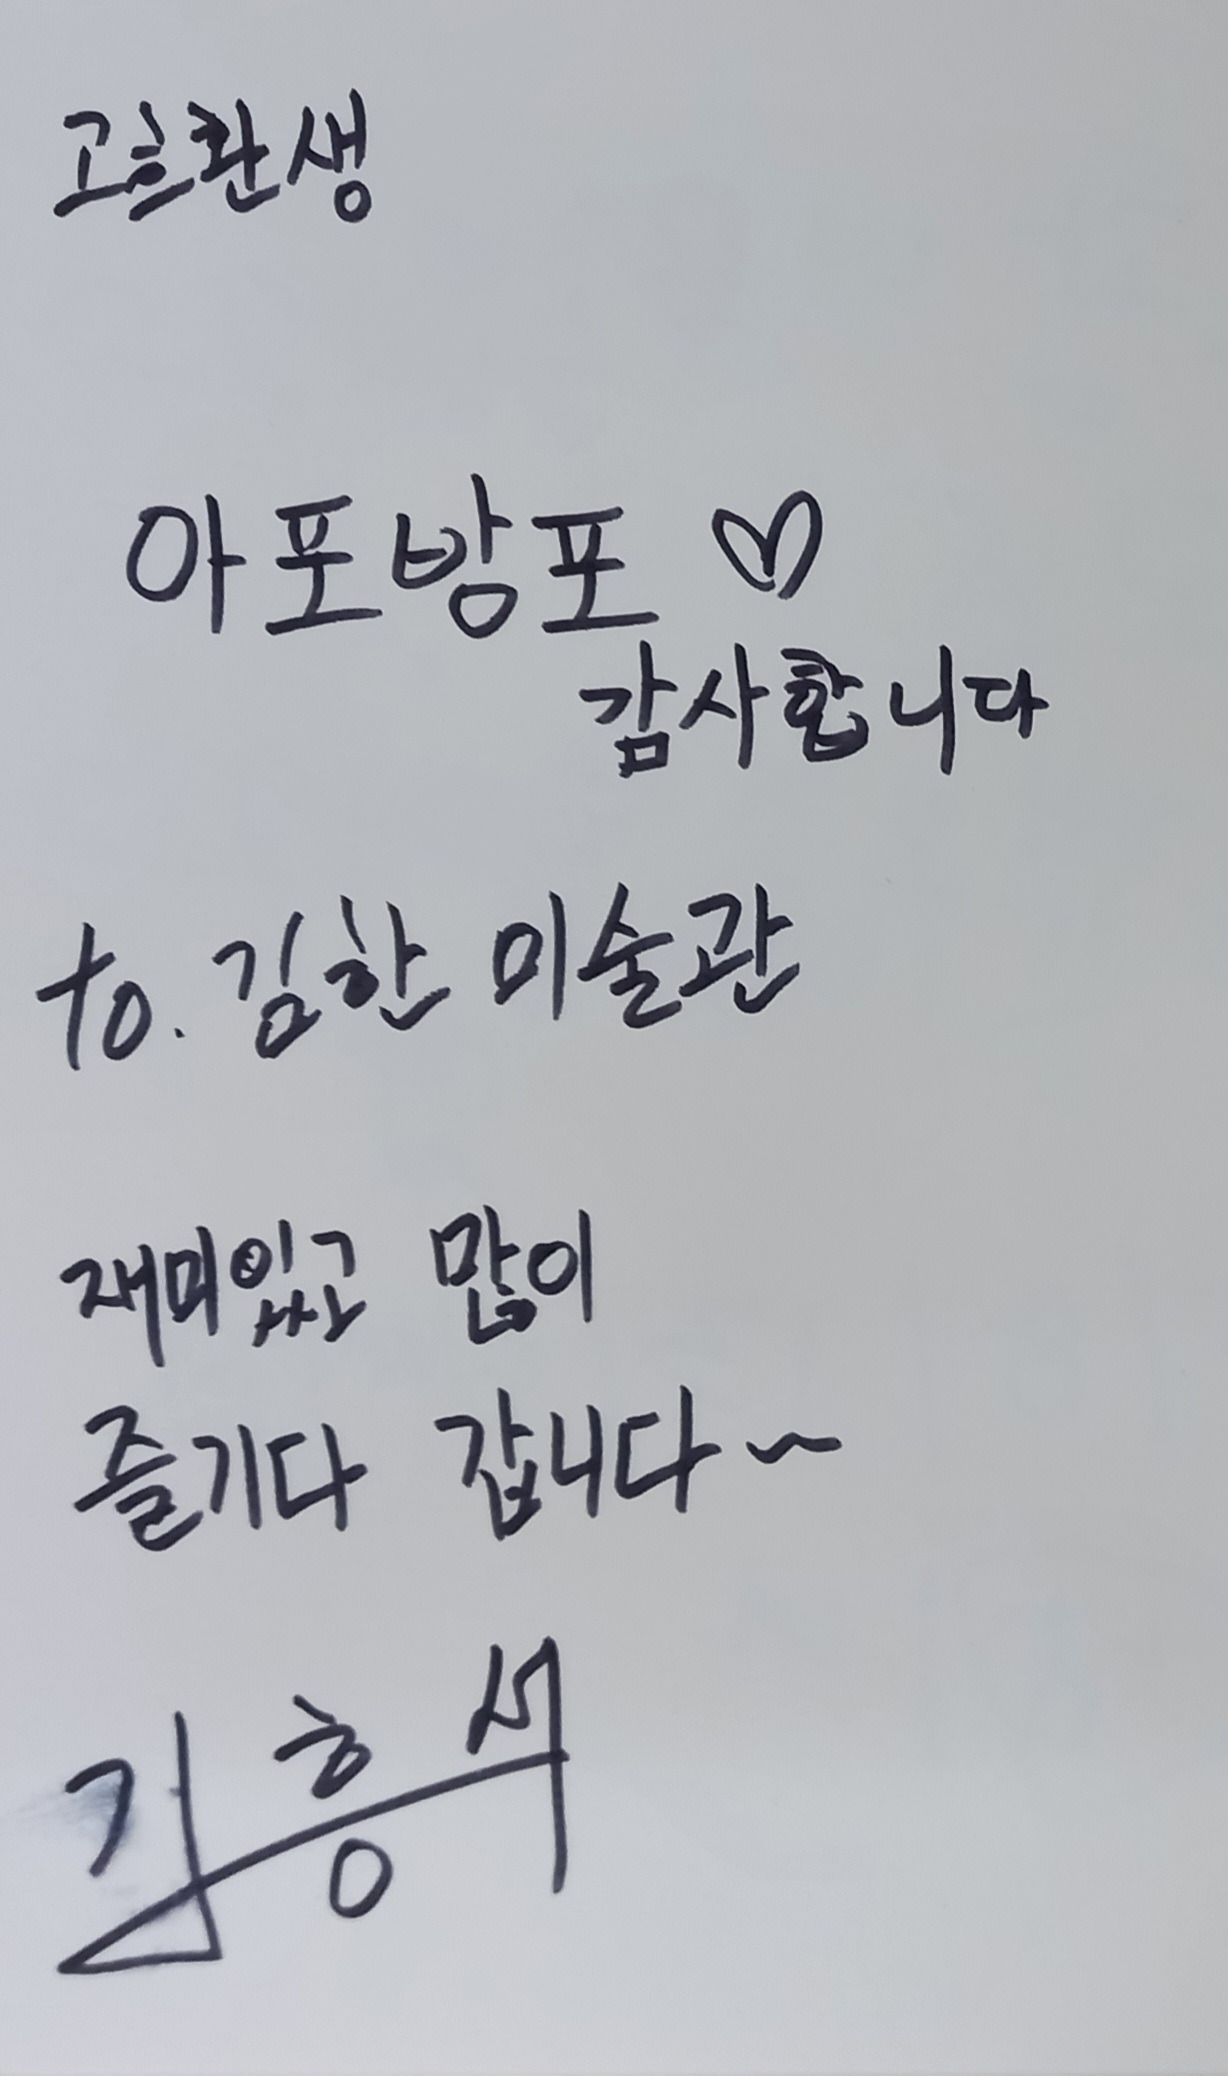 고흐환생
아포방포 ♡
감사합니다
to. 김한 미술관
재미있고 많이
즐기다 갑니다~
김흥서